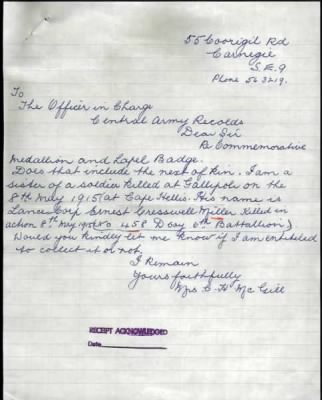 55 Coorigil Rd
Carnegie
S.E.9
Phone 56 3219.
To
The Officer in Charge
Central Army Records
Dear Sir
Re Commemorative
Medallion and Lapel Badge.
Does that include the next of kin. I am a
sister of a soldier killed at Gallipoli on the
8th May 1915 (at Cape Hellis. His name is
Lance Corp Ernest Cresswell Miller Killed in
action 8th May, No 458 D Coy 6th Battalion)
Would you kindly let me know if I am entitled
to collect it or not.
I Remain
Yours faithfully
Mrs C. H McGill
RECEIPT ACKNOWLEDGED
Date